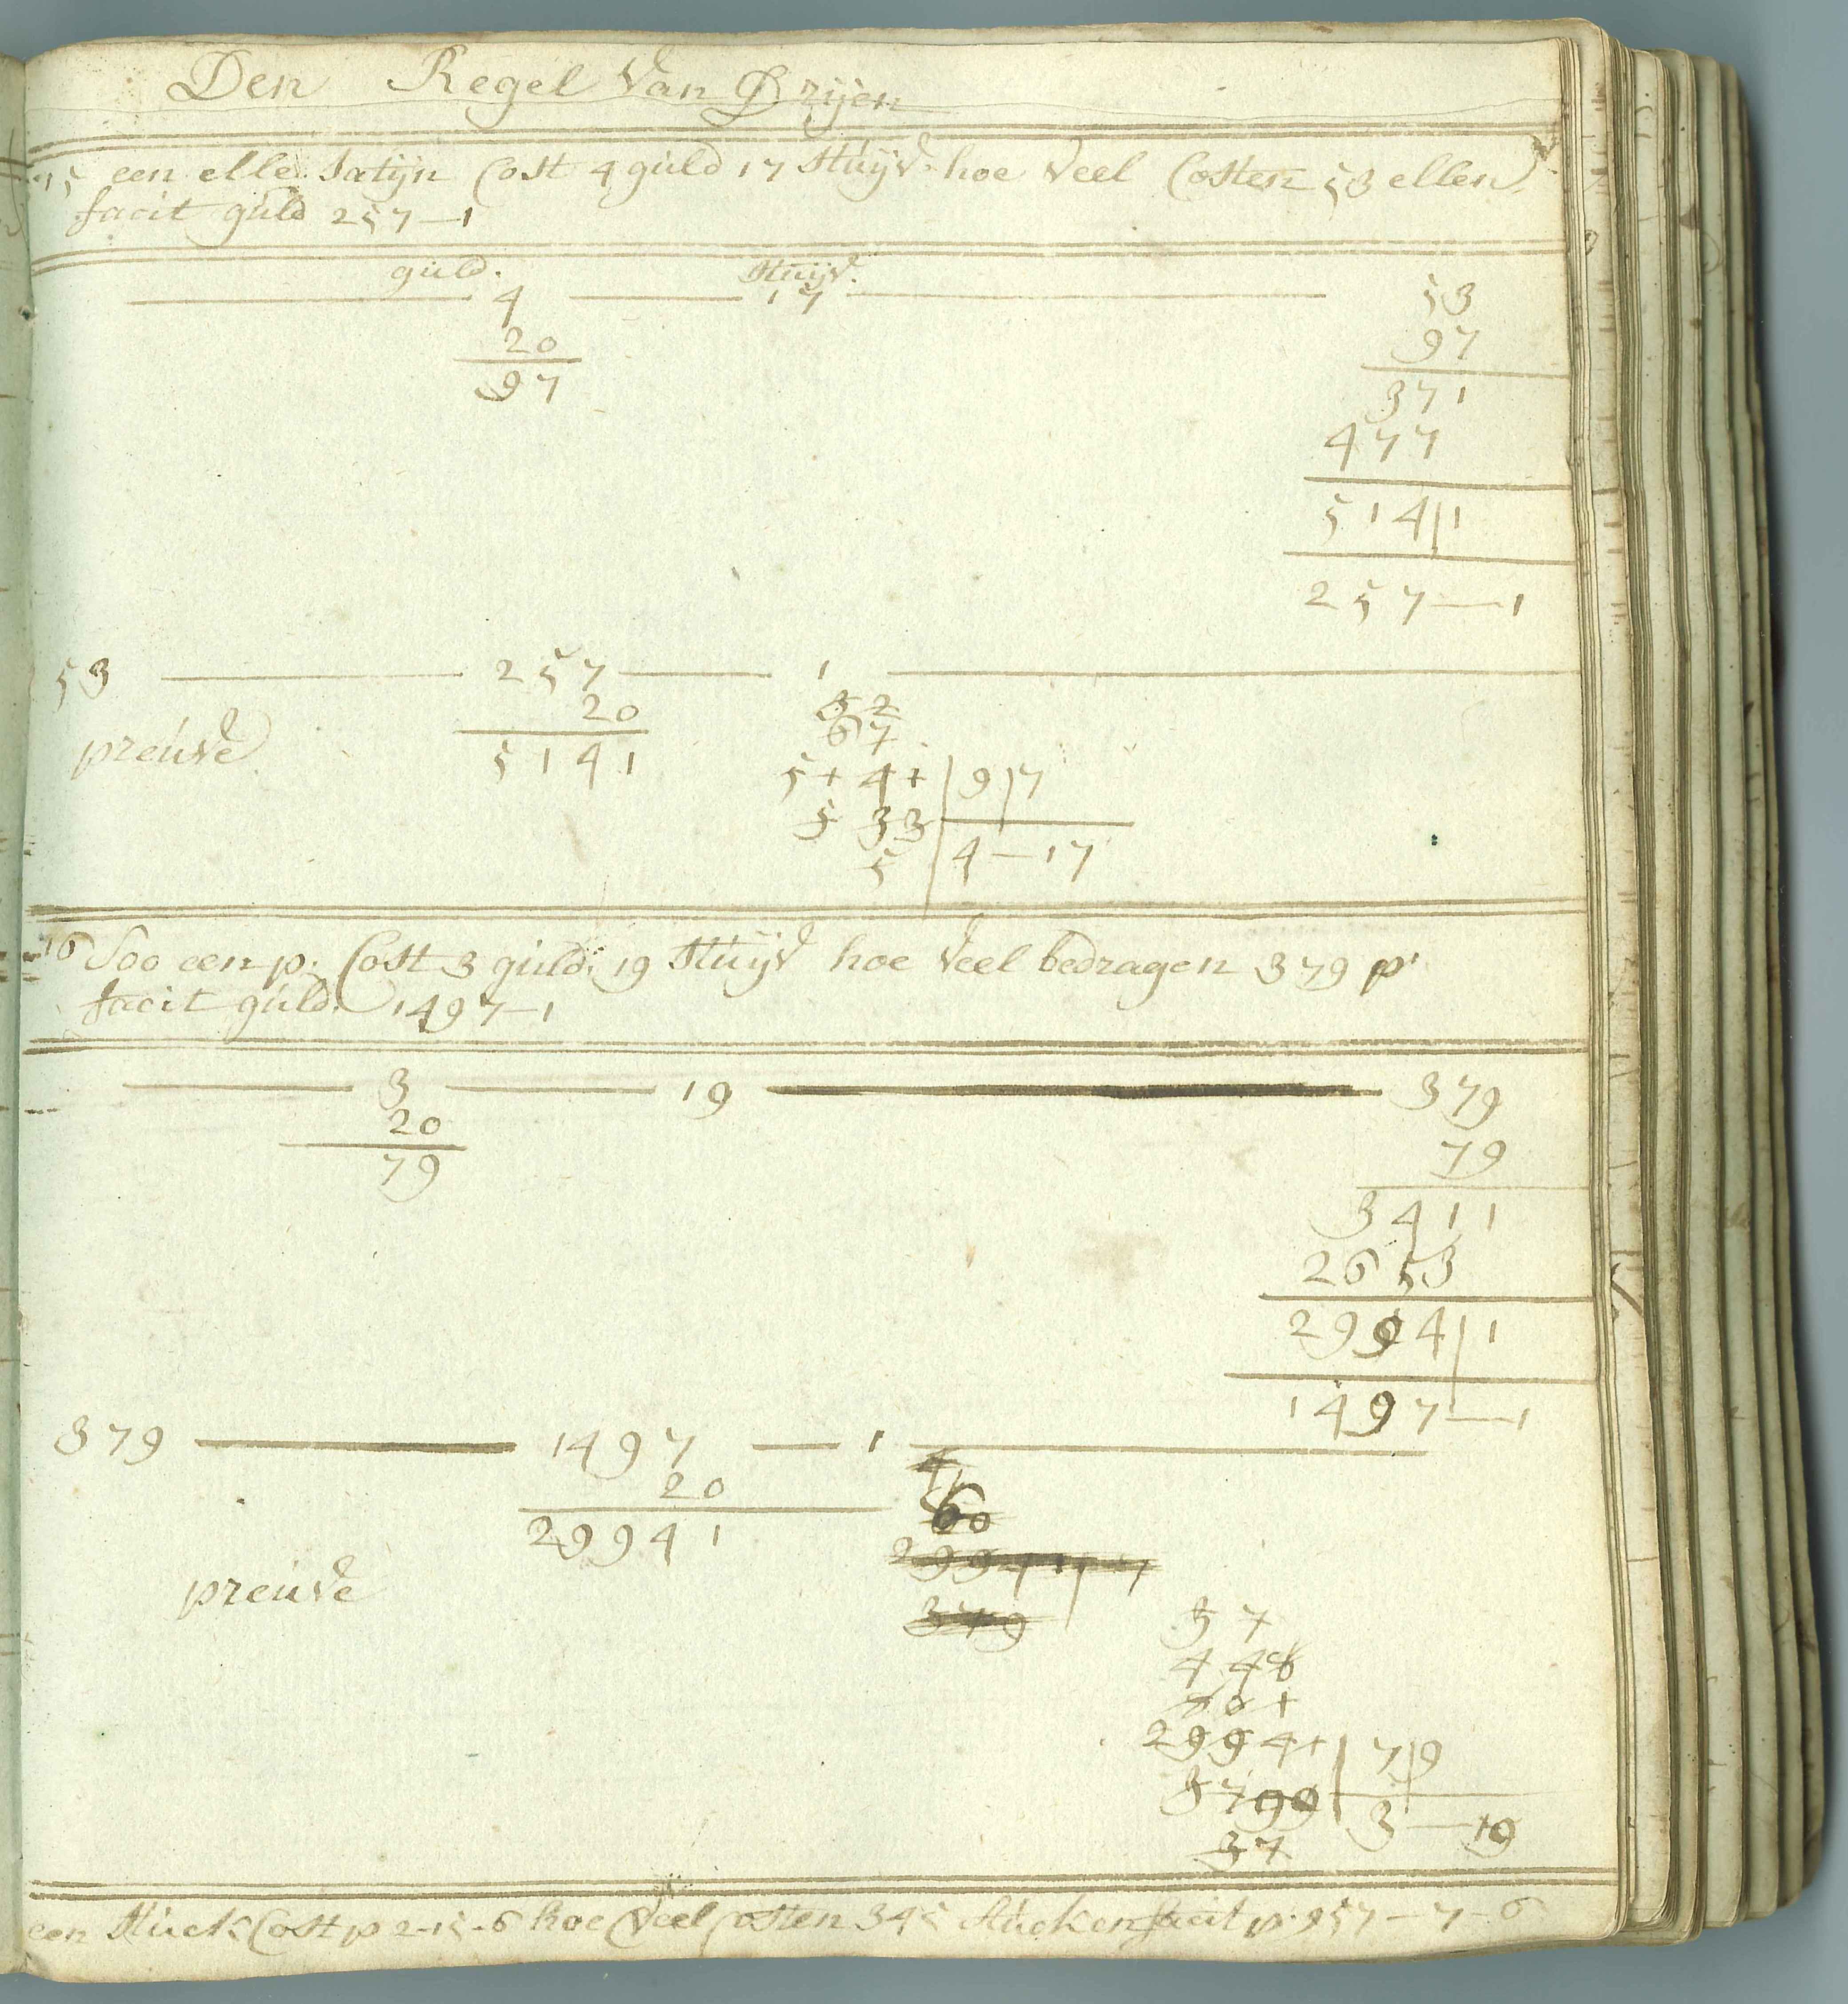 Den Regel Van Drijen
15 een elle Satijn Cost 4 guld 17 Stuijv. hoe veel Costen 53 ellen
facit guld 257—1
guld. Stuijv.
4 — 17 — 53
20 97
97 371
477
514|1
257—1
53 — 257 — 1
20
preuve 5141
3 2
6 7
5141 | 9|7
5 33 | 4—17
5
16 Soo een p. Cost 3 guld. 19 Stuijv hoe veel bedragen 379 p.
facit guld. 1497—1
3 — 19 — 379
20 79
79 3411
2653
2994|1
1497—1
379 — 1497 — 1
20
29941
preuve
60
379
3 7
4 4 8
29941 | 7|9
3799 | 3—19
37
een Stuck Cost p 2-15-6 hoe Veel costen 345 Stucken facit p. 957-7-6